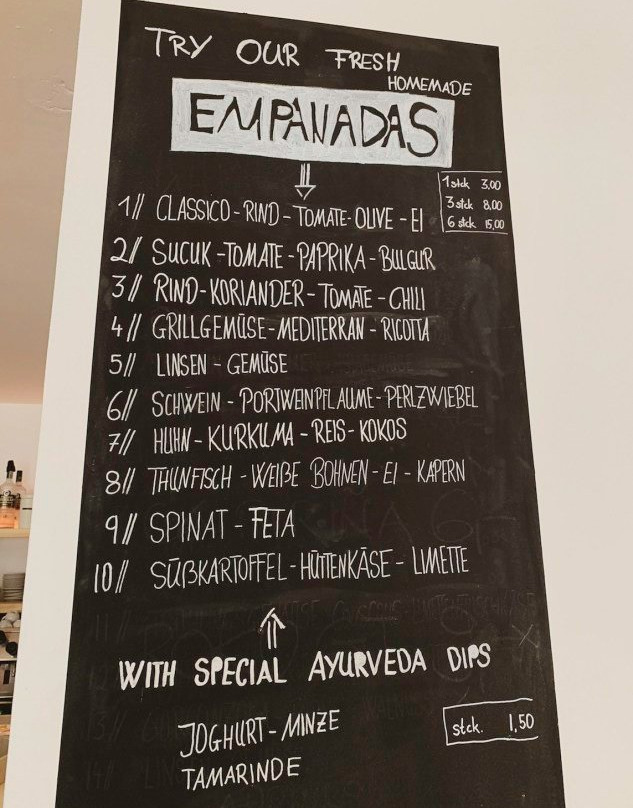 TRY OUR FRESH
HOMEMADE
EMPANADAS
1stck 3,00
3stck 8,00
6stck 15,00
1// CLASSICO-RIND-TOMATE-OLIVE-EI
2// SUCUK-TOMATE-PAPRIKA-BULGUR
3// RIND-KORIANDER-TOMATE-CHILI
4// GRILLGEMÜSE-MEDITERRAN-RICOTTA
5// LINSEN-GEMÜSE
6// SCHWEIN-PORTWEINPFLAUME-PERLZWIEBEL
7// HUHN-KURKUMA-REIS-KOKOS
8// THUNFISCH-WEIßE BOHNEN-EI-KAPERN
9// SPINAT-FETA
10// SÜßKARTOFFEL-HÜTTENKÄSE-LIMETTE
WITH SPECIAL AYURVEDA DIPS
JOGHURT-MINZE
stck. 1,50
TAMARINDE